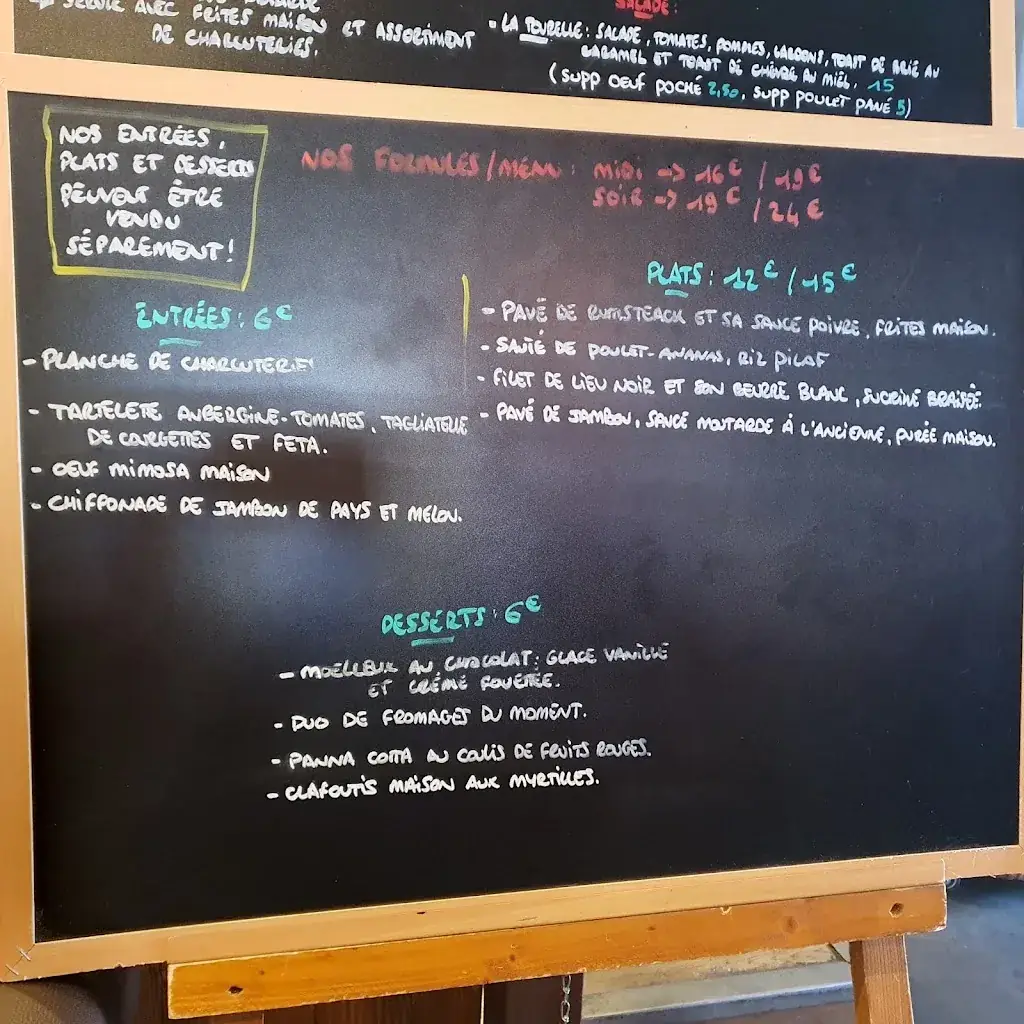 SERVIE AVEC FRITES MAISON ET ASSORTIMENT
DE CHARCUTERIES.
SALADE :
- LA TOURELLE : SALADE, TOMATES, POMMES, LARDONS, TOAST DE BRIE AU
CARAMEL ET TOAST DE CHÈVRE AU MIEL. 15
(SUPP OEUF POCHÉ 2,50, SUPP POULET PANÉ 5)
NOS ENTRÉES,
PLATS ET DESSERTS
PEUVENT ÊTRE
VENDU
SÉPAREMENT !
NOS FORMULES/MENU : MIDI -> 16€ / 19€
SOIR -> 19€ / 24€
ENTRÉES : 6€
- PLANCHE DE CHARCUTERIE
- TARTELETE AUBERGINE-TOMATES, TAGLIATELLE
DE COURGETTES ET FETA.
- OEUF MIMOSA MAISON
- CHIFFONADE DE JAMBON DE PAYS ET MELON.
PLATS : 12€ / 15€
- PAVÉ DE RUMSTEACK ET SA SAUCE POIVRE, FRITES MAISON.
- SAUTÉ DE POULET-ANANAS, RIZ PILAF
- FILET DE LIEU NOIR ET SON BEURRE BLANC, SUCRINE BRAISÉE.
- PAVÉ DE JAMBON, SAUCE MOUTARDE À L'ANCIENNE, PURÉE MAISON.
DESSERTS : 6€
- MOELLEUX AU CHOCOLAT : GLACE VANILLE
ET CRÉME FOUETTÉE.
- DUO DE FROMAGES DU MOMENT.
- PANNA COTTA AU COULIS DE FRUITS ROUGES.
- CLAFOUTIS MAISON AUX MYRTILLES.